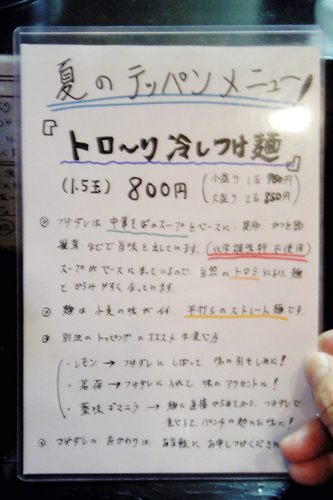 夏のテッパンメニュー!
『トロ〜り冷しつけ麺』
(1.5玉) 800円 (小盛り 1玉 750円
大盛り 2玉 850円)
つけダレは 中華そばのスープをベースに、昆布、かつお節
などで旨味を出しています。(化学調味料 不使用)
スープがベースに出来ているので、自然のトロミにより、麺
とからみやすくなっています。
麺は小麦の味がする、平打ちのストレート麺です。
別皿のトッピングのオススメな食べ方
・レモン → つけダレにしぼって、味の引きしめに!
・茗荷 → つけダレに入れて、味のアクセントに!
・薬味ゴマニラ → 麺に直接のせて、つけダレで
食べると、パンチの効いた味に!
つけダレのおかわりは お気軽に お申しつけくださ